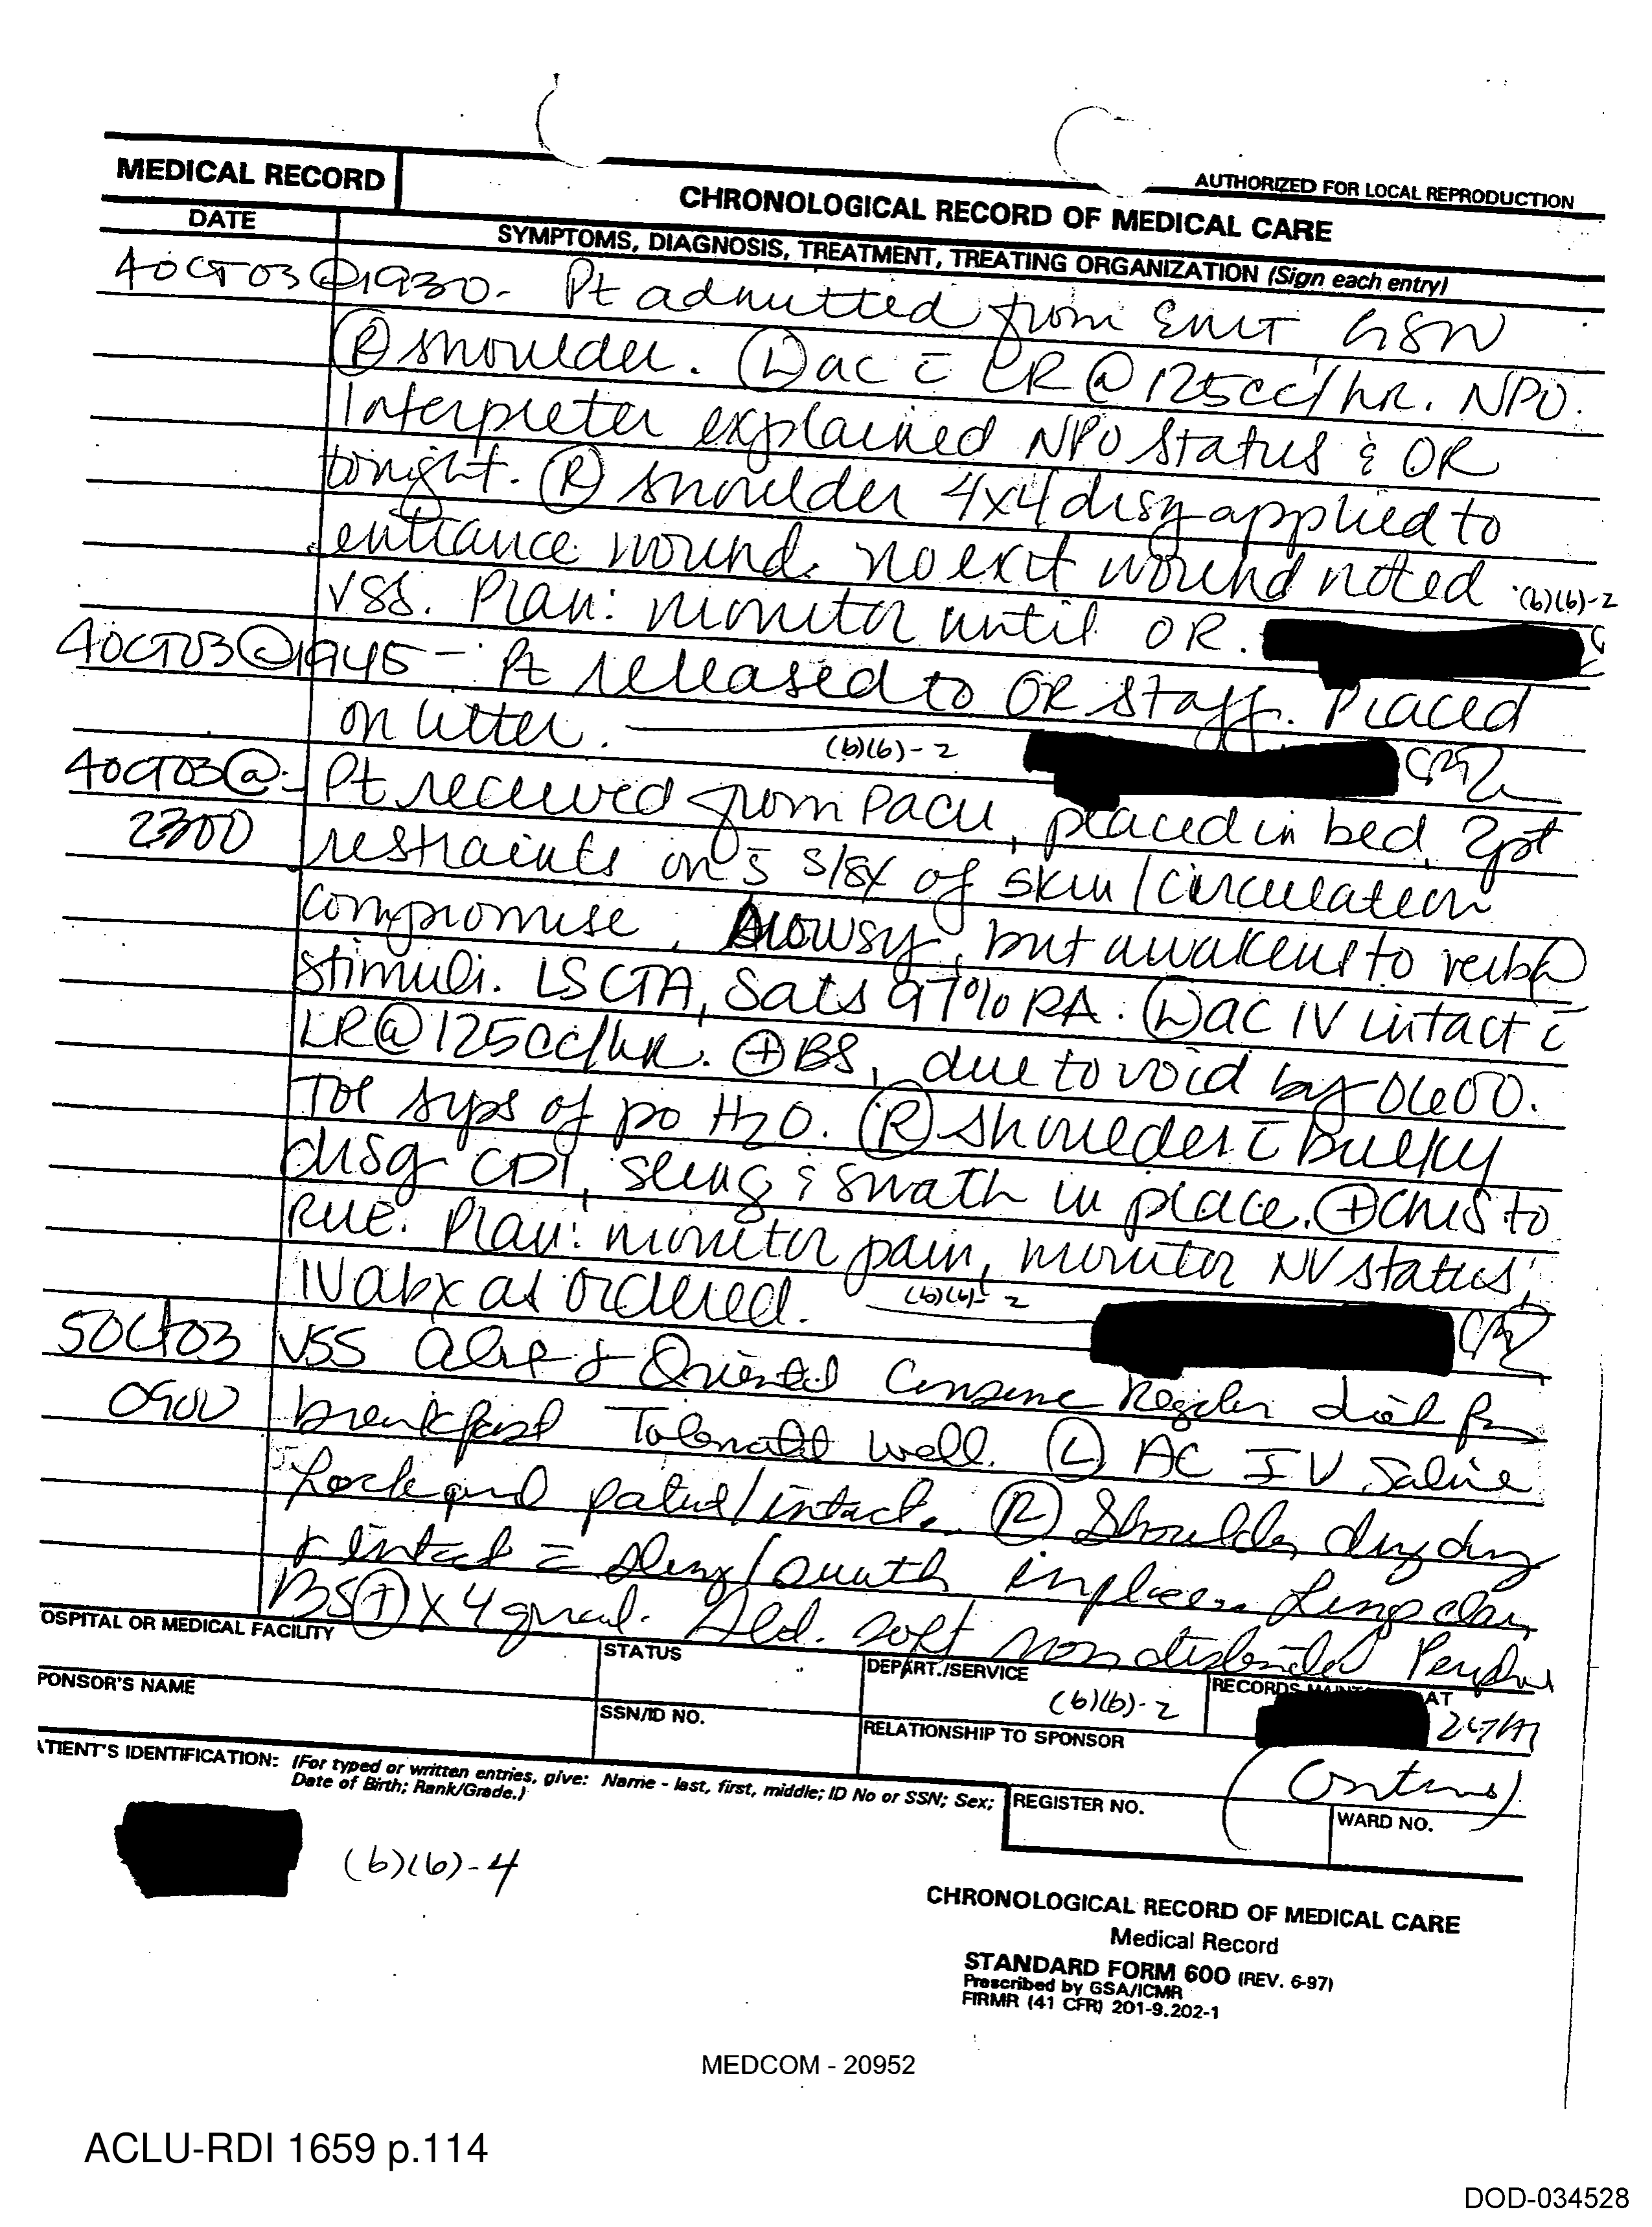 MEDICAL RECORD
CHRONOLOGICAL RECORD OF MEDICAL CARE
AUTHORIZED FOR LOCAL REPRODUCTION
DATE
SYMPTOMS, DIAGNOSIS, TREATMENT, TREATING ORGANIZATION (Sign each entry)
4OCT03@1930. Pt admitted from EMT, GSW
Ⓡ shoulder. Ⓛ ac c̄ LR @ 125cc/hr. NPO.
Interpreter explained NPO status & OR
tonight. Ⓡ shoulder 4x4 drsg applied to
entrance wound. No exit wound noted (b)(6)-2
VSS. Plan: monitor until OR.
4OCT03@1945 - Pt released to OR staff. Placed
on litter. (b)(6)-2
4OCT03@ Pt received from PACU, placed in bed, 2pt
2300 restraints on s̄ s/sx of skin/circulation
compromise. Drowsy, but awakens to verbal
stimuli. LS CTA, Sats 97% RA. Ⓛ ac IV intact c̄
LR@125cc/hr. ⊕BS, due to void by 0600.
Tol syps of po H2O. Ⓡ shoulder c̄ bulky
drsg CDI, sling & swath in place. ⊕CMS to
RUE. Plan: monitor pain, monitor NV status,
IV abx as ordered. (b)(6)-2
5Oct03 VSS Alert & Oriented Consume Regular diet for
0900 breakfast Tolerated well. Ⓛ AC IV Saline
Lock patent/intact. Ⓡ Shoulder drsg dry
& intact c̄ sling/swath in place. Lungs clear,
BS⊕ x 4 quad. Abd. soft non distended
OSPITAL OR MEDICAL FACILITY
STATUS
DEPART./SERVICE
RECORDS MAINT AT
(b)(6)-2
PONSOR'S NAME
SSN/ID NO.
RELATIONSHIP TO SPONSOR
ATIENT'S IDENTIFICATION: (For typed or written entries, give: Name - last, first, middle; ID No or SSN; Sex;
Date of Birth; Rank/Grade.)
REGISTER NO.
WARD NO.
(b)(6)-4
CHRONOLOGICAL RECORD OF MEDICAL CARE
Medical Record
STANDARD FORM 600 (REV. 6-97)
Prescribed by GSA/ICMR
FIRMR (41 CFR) 201-9.202-1
MEDCOM - 20952
ACLU-RDI 1659 p.114
DOD-034528